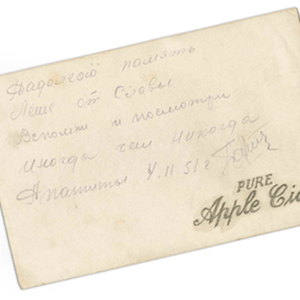 Надолгою память
Леше от Славы
Вспомни и посмотри
иногда чем никогда
Апатиты 4.11 51г
PURE
Apple Cid